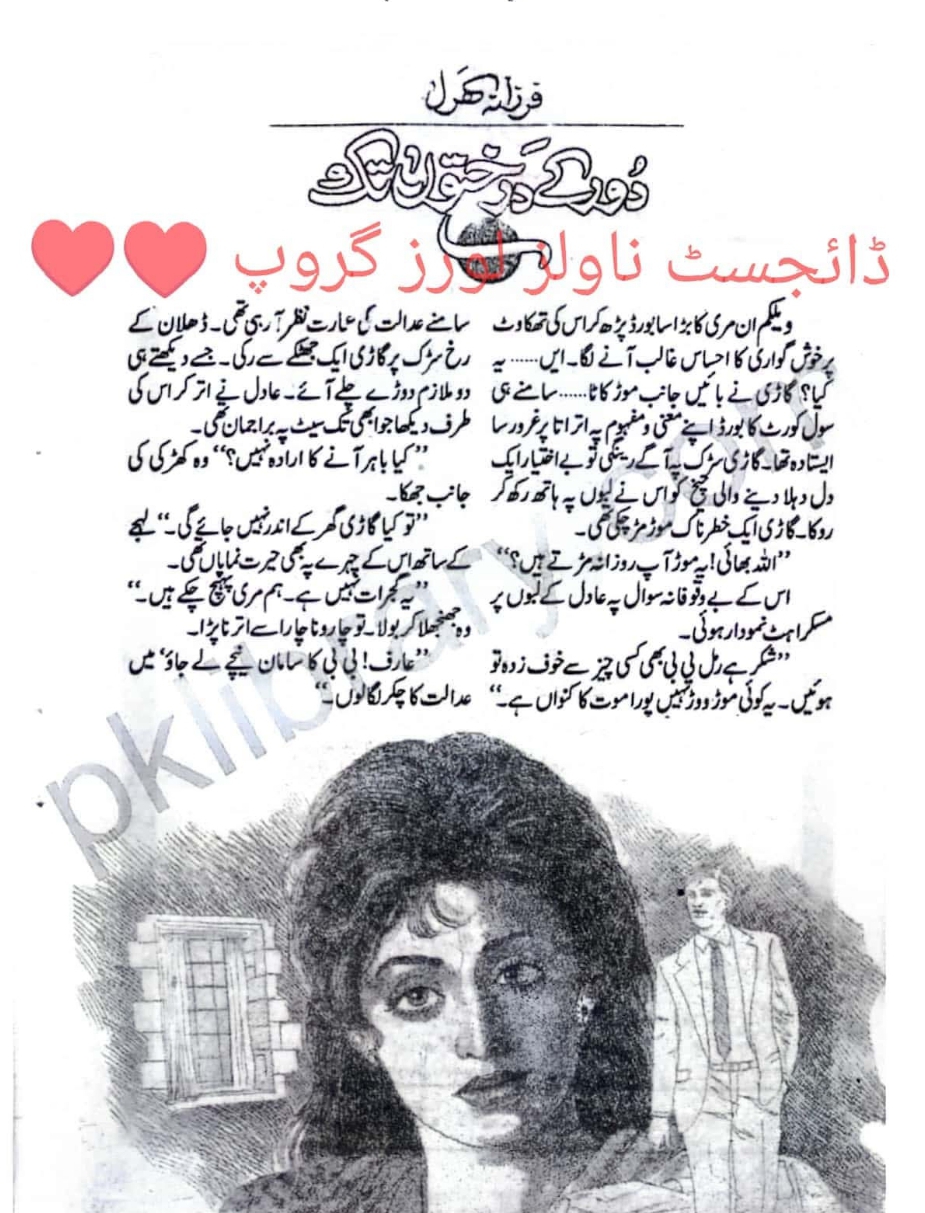 فرزانہ کھرل
دُور کے دَرختوں تک
ڈائجسٹ ناولز لورز گروپ
ویلکم ان مری کا بڑا سا بورڈ پڑھ کر اس کی تھکاوٹ
پر خوش گواری کا احساس غالب آنے لگا۔ ایں...... یہ
کیا؟ گاڑی نے بائیں جانب موڑ کاٹا...... سامنے ہی
سول کورٹ کا بورڈ اپنے معنی و مفہوم پہ اتراتا پر غرور سا
ایستادہ تھا۔ گاڑی سڑک پہ آگے رینگی تو بے اختیار ایک
دل دہلا دینے والی چیخ کو اس نے لبوں پہ ہاتھ رکھ کر
روکا۔ گاڑی ایک خطرناک موڑ مڑ چکی تھی۔
”اللہ بھائی! یہ موڑ آپ روزانہ مڑتے ہیں؟“
اس کے بے وقوفانہ سوال پہ عادل کے لبوں پر
مسکراہٹ نمودار ہوئی۔
”شکر ہے رمل بی بی بھی کسی چیز سے خوف زدہ تو
ہوئیں۔ یہ کوئی موڑ ووڑ نہیں پورا موت کا کنواں ہے۔“
سامنے عدالت کی عمارت نظر آ رہی تھی۔ ڈھلان کے
رخ سڑک پر گاڑی ایک جھٹکے سے رکی۔ جسے دیکھتے ہی
دو ملازم دوڑے چلے آئے۔ عادل نے اتر کر اس کی
طرف دیکھا جو ابھی تک سیٹ پہ براجمان تھی۔
”کیا باہر آنے کا ارادہ نہیں؟“ وہ کھڑکی کی
جانب جھکا۔
”تو کیا گاڑی گھر کے اندر نہیں جائے گی۔“ لہجے
کے ساتھ اس کے چہرے پہ بھی حیرت نمایاں تھی۔
”یہ گجرات نہیں ہے۔ ہم مری پہنچ چکے ہیں۔“
وہ جھنجھلا کر بولا۔ تو چار و ناچار اسے اترنا پڑا۔
”عارف! بی بی کا سامان نیچے لے جاؤ‘ میں
عدالت کا چکر لگا لوں۔“
pklibrary.com